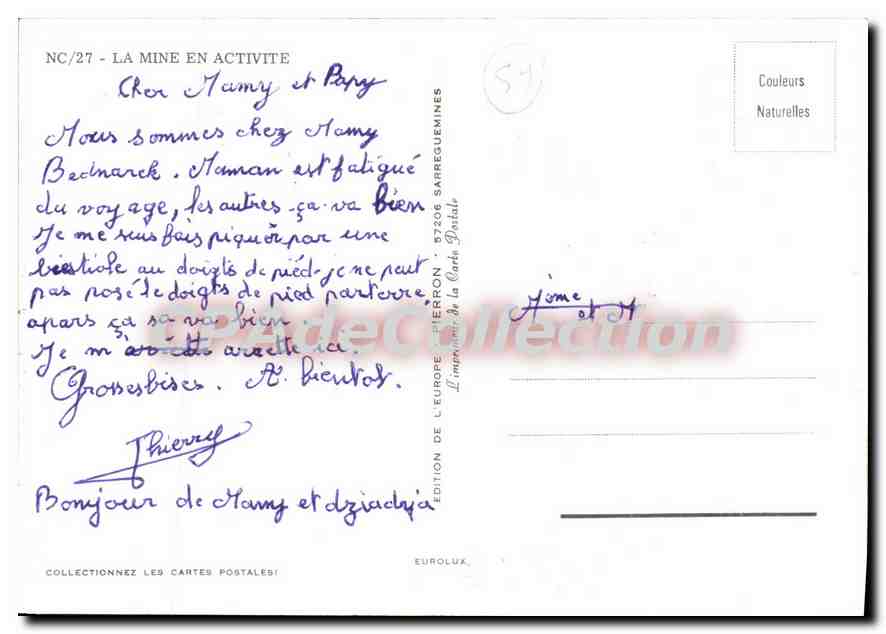 NC/27 - LA MINE EN ACTIVITE
Cher Mamy et Papy
Nous sommes chez Mamy
Bednarck. Maman est fatigué
du voyage, les autres ça va bien
Je me suis fais piquér par une
bestiole au doigts de pied je ne peut
pas posé le doigts de pied parterre.
apars ça sa va bien
Je m' arrette ici.
Grosses bises. A bientot.
Thierry
Bonjour de Mamy et dziadzja
COLLECTIONNEZ LES CARTES POSTALES!
EDITION DE L'EUROPE - PIERRON - 57206 SARREGUEMINES
L'imprimeur de la Carte Postale
EUROLUX
51
Couleurs
Naturelles
Mome
et M
CPAdeCollection